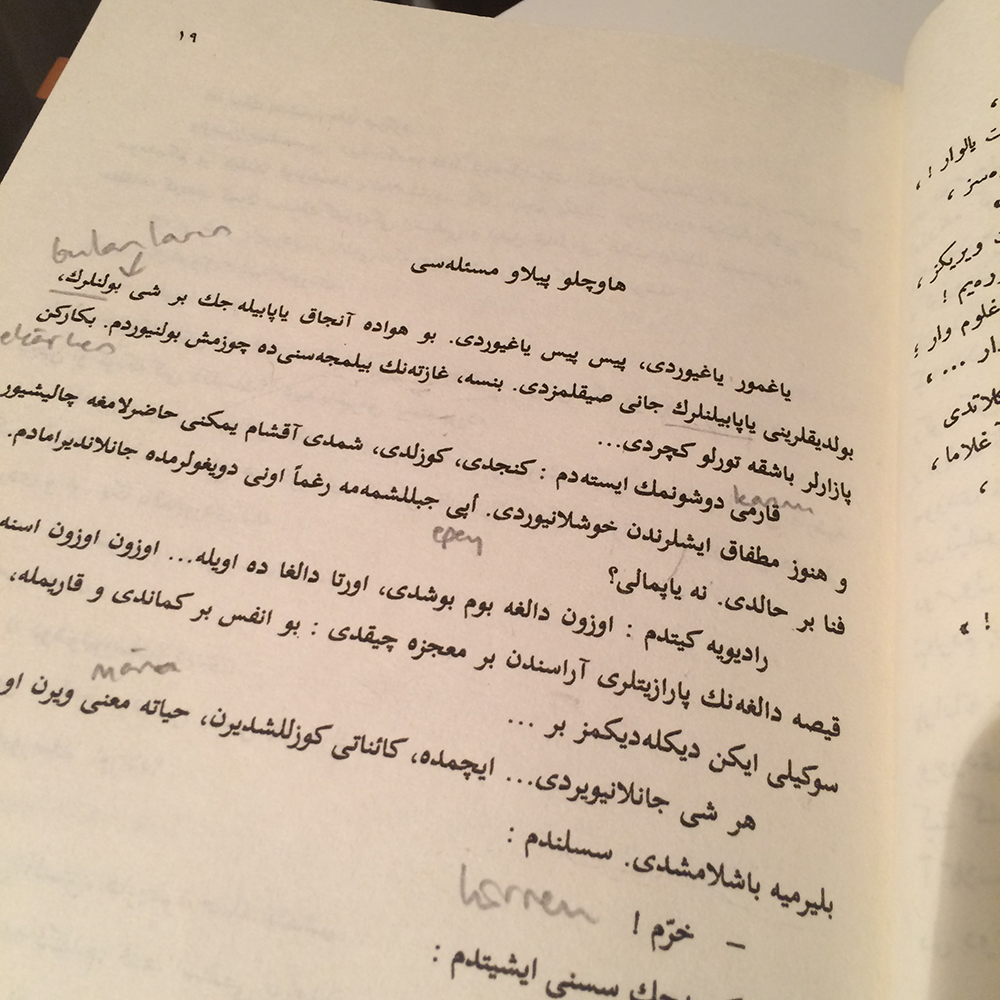 ١٩
هاوچلو پيلاو مسئله‌سی
bulanların
ياغمور ياغيوردی، پيس پيس ياغيوردی. بو هواده آنجاق ياپابيله جك بر شی بولنلرك،
بولديقلرينی ياپابيلنلرك جانی صيقلمزدی. بنسه، غازته‌نك بيلمجه‌سنی‌ده چوزمش بولنيوردم. بكاركن
پازارلر باشقه تورلو كچردی...
قارمی دوشونمك ايسته‌دم : كنجدی، كوزلدی، شمدی آقشام يمكنی حاضرلامغه چاليشيور
karımı
و هنوز مطفاق ايشلرندن خوشلانيوردی. أپی جبللشمه‌مه رغماً اونی دويغولرمده جانلانديرامادم.
epey
فنا بر حالدی. نه ياپمالی؟
راديويه كيتدم : اوزون دالغه بوم بوشدی، اورتا دالغا ده اويله... اوزون اوزون اسنه
قيصه دالغه‌نك پارازيتلری آراسندن بر معجزه چيقدی : بو انفس بر كماندی و قاريمله،
mâna
سوكيلی ايكن ديكله‌ديكمز بر ...
هر شی جانلانيويردی... ايچمده، كائناتی كوزللشديرن، حياته معنی ويرن او
بليرميه باشلامشدی. سسلندم :
– خرّم !
سسنی ايشيتدم :
ت يالوار ! ،
ويريكز ،
وار ؛
... ،
كلاتدی
آغلاما ،
! »